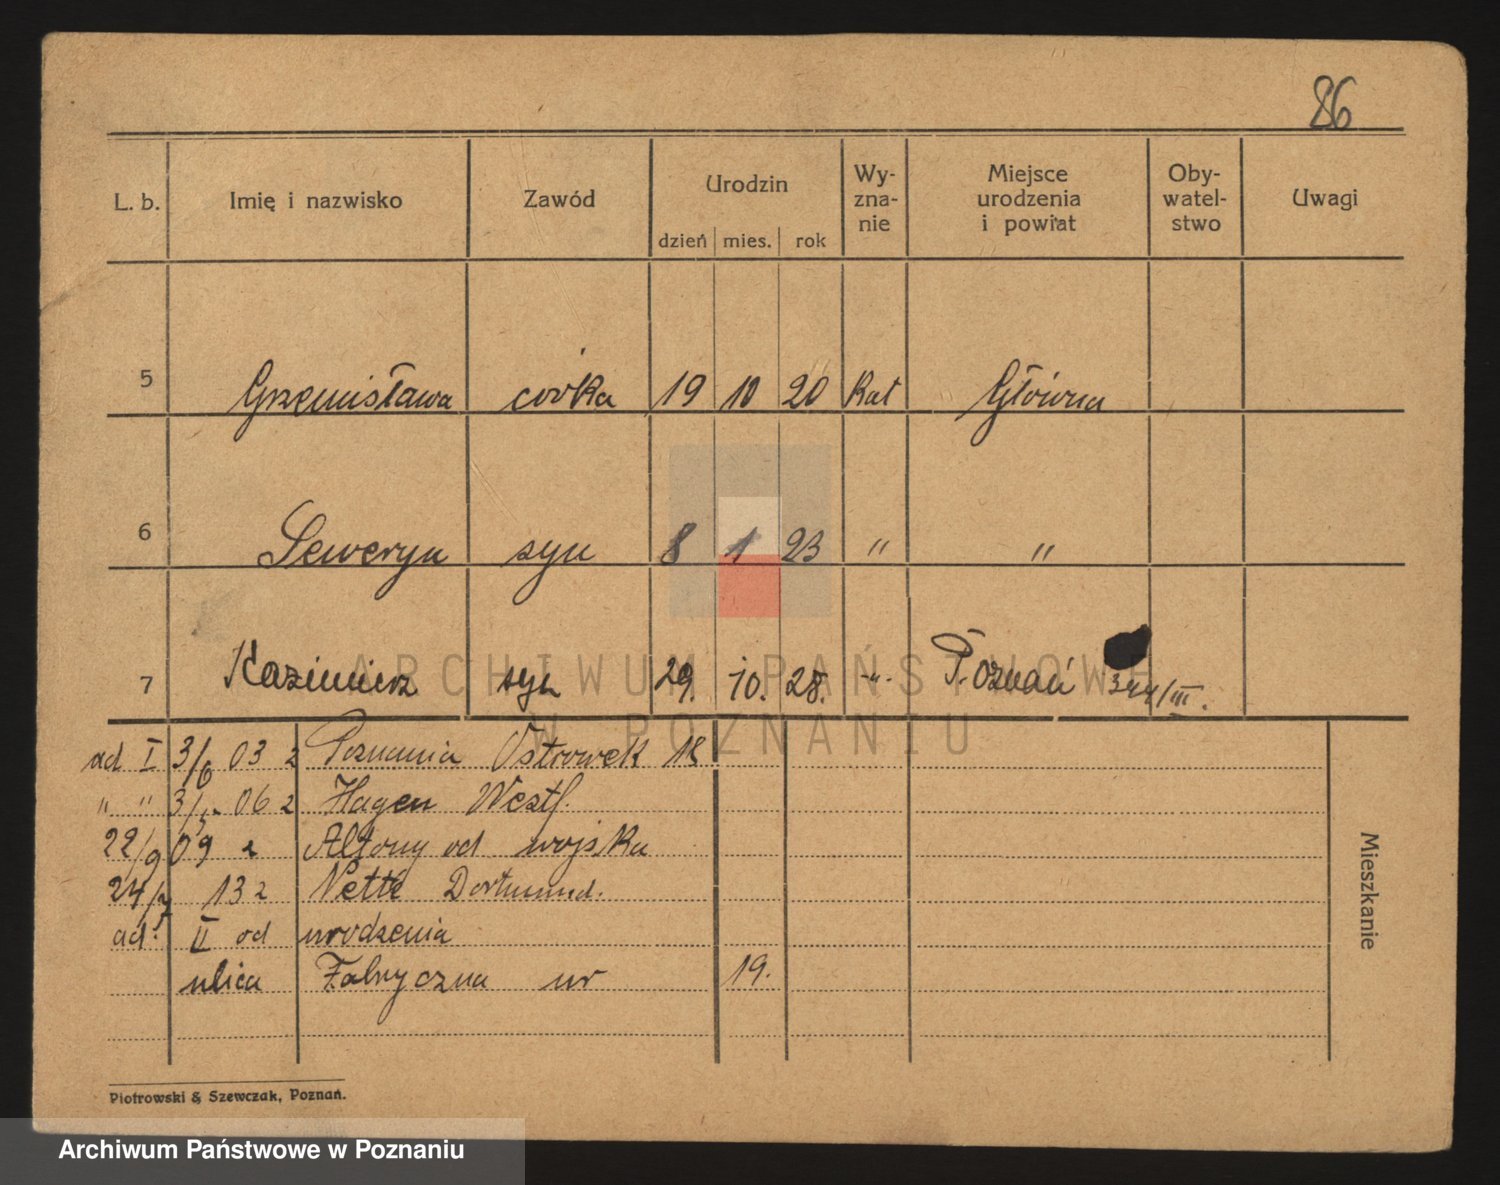 86
L. b. Imię i nazwisko Zawód Urodzin Wy-zna-nie Miejsce urodzenia i powiat Oby-watel-stwo Uwagi
dzień mies. rok
5 Grzemisława córka 19 10 20 Kat Główna
6 Seweryn syn 8 1 23 " "
7 Kazimierz syn 29. 10. 28. -"- Poznań 344/III.
ARCHIWUM PAŃSTWOWE
W POZNANIU
ad I 3/6 03 z Poznania Ostrowek 18
" " 06 z Hagen Westf.
22/9 09 z od wojska
24/ 13 z Nette Dortmund.
ad. II od urodzenia
ulica Fabryczna nr 19.
Mieszkanie
Piotrowski & Szewczak, Poznań.
Archiwum Państwowe w Poznaniu